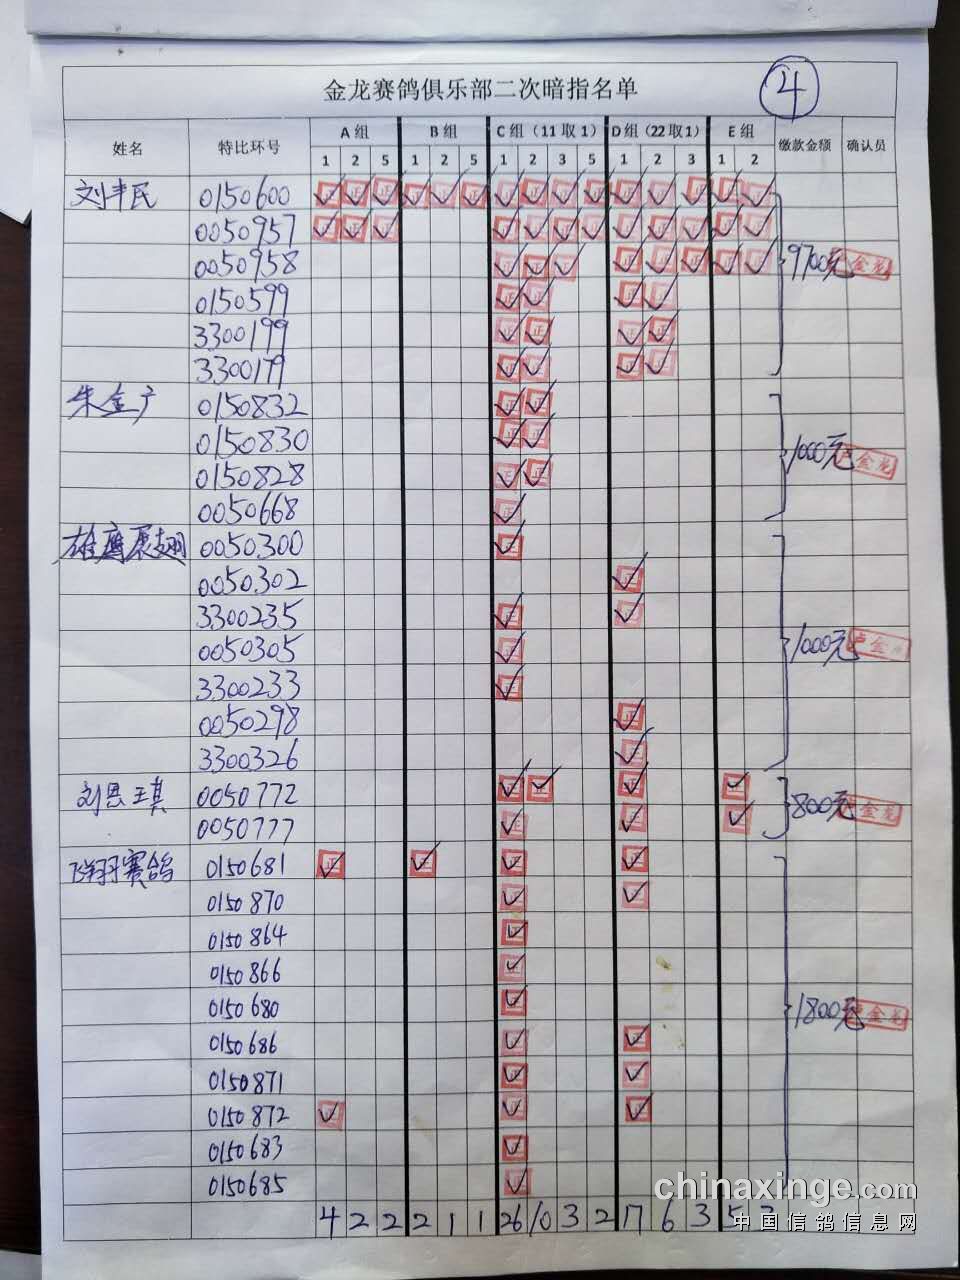 金龙赛鸽俱乐部二次暗指名单 4
姓名 特比环号 A 组 B 组 C 组（11 取 1） D 组（22 取 1） E 组 缴款金额 确认员
1 2 5 1 2 5 1 2 3 5 1 2 3 1 2
刘丰民 0150600
0050957
0050958 9700元 金龙
0150599
3300199
3300179
朱金广 0150832
0150830 1000元 卢金龙
0150828
0050668
雄鹰展翅 0050300
0050302
3300235
0050305 1000元 卢金
3300233
0050298
3300326
刘思琪 0050772 800元 金龙
0050777
飞翔赛鸽 0150681
0150870
0150864
0150866
0150680 1800元 金龙
0150686
0150871
0150872
0150683
0150685
chinaxinge.com
4 2 2 2 1 1 26 10 3 2 17 6 3 5
中国信鸽信息网